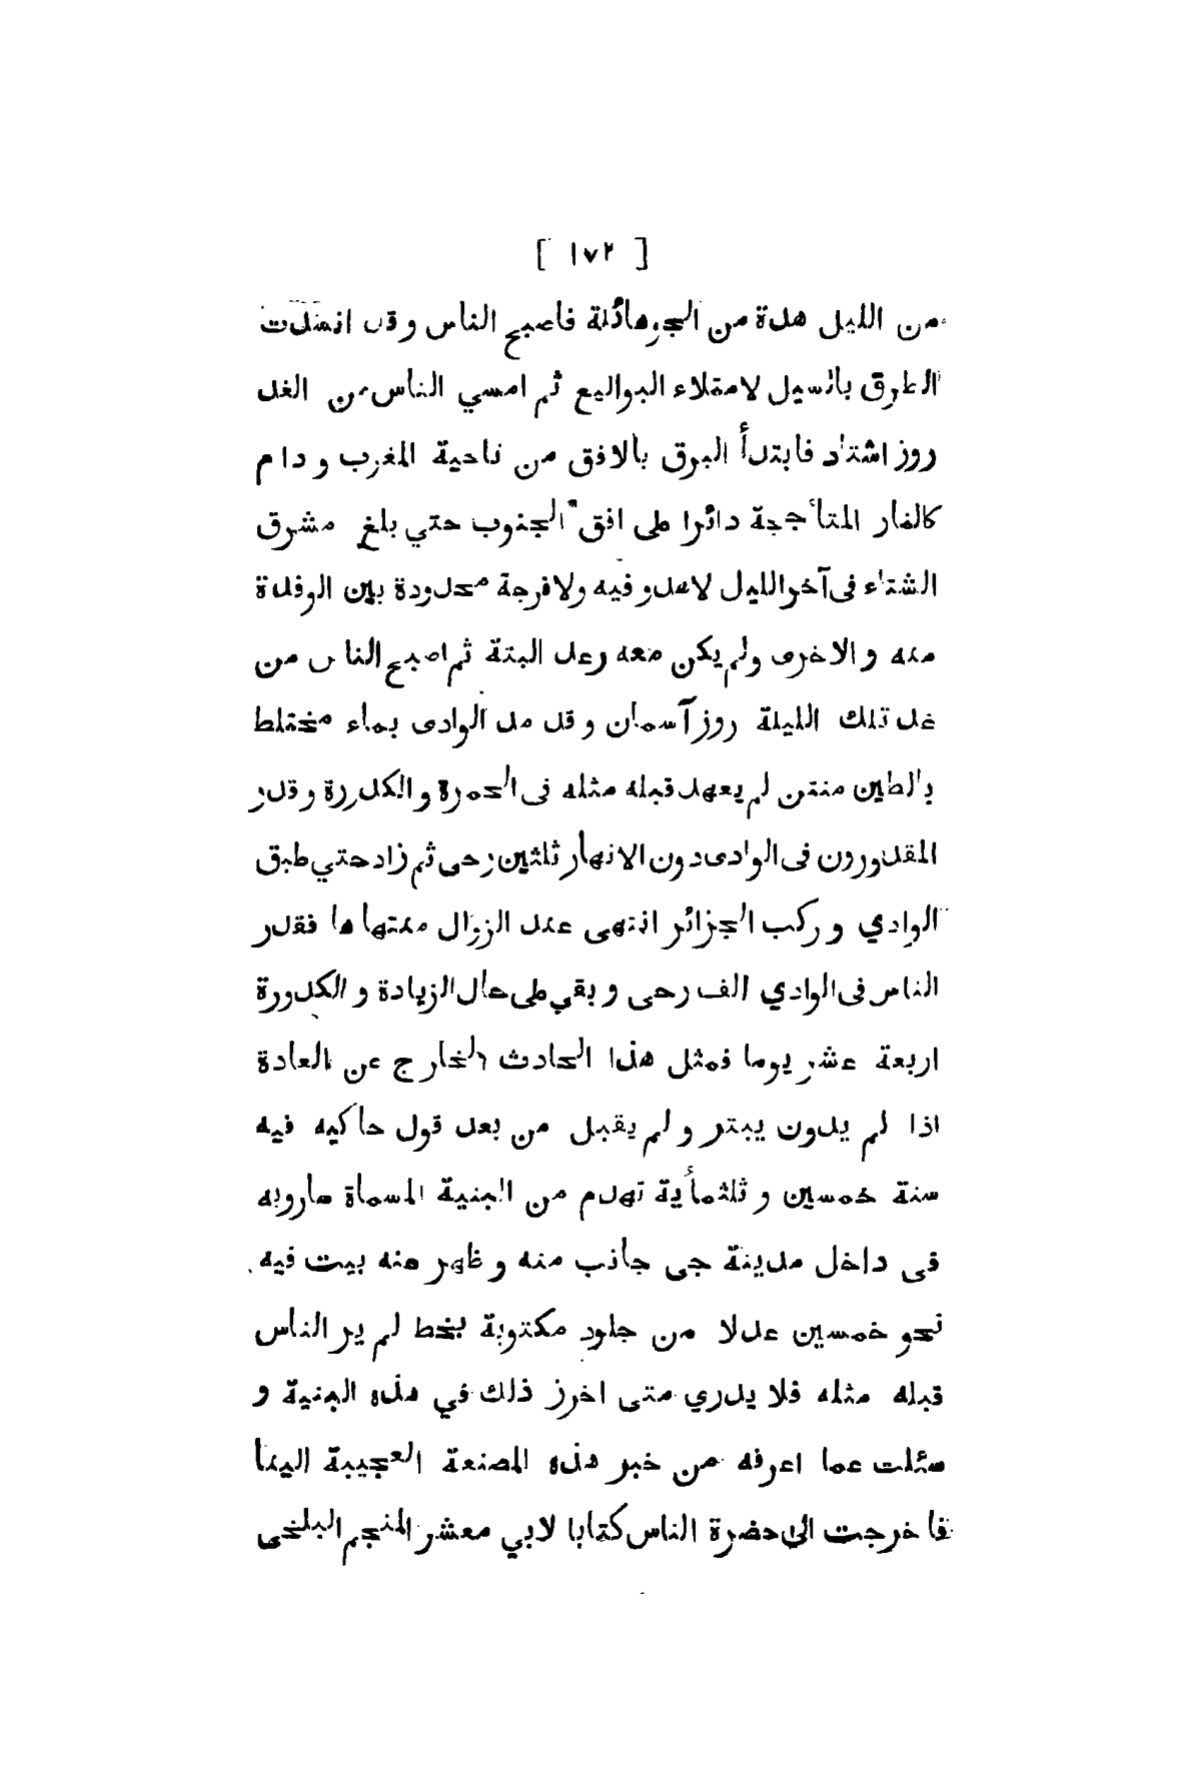 [ ١٧٢ ]
من الليل هدة من الجو هائلة فاصبح الناس وقد انسدت
الطرق بالسيل لامتلاء البواليع ثم امسي الناس من الغد
روز اشتاد فابتدأ البرق بالافق من ناحية المغرب و دام
كالنار المتأججة دائرا على افق الجنوب حتي بلغ مشرق
الشتاء فى آخر الليل لاهدو فيه ولا فرجة محدودة بين الوقدة
منه و الاخرى ولم يكن معه رعد البتة ثم اصبح الناس من
غد تلك الليلة روز آسمان و قد مد الوادى بماء مختلط
بالطين منتن لم يعهد قبله مثله فى الحمرة و الكدررة و قدر
المقدورون فى الوادى دون الانهار ثلثين رحى ثم زاد حتي طبق
الوادي و ركب الجزائر انتهى عند الزوال منتهاها فقدر
الناس فى الوادي الف رحى و بقي على حال الزيادة و الكدورة
اربعة عشر يوما فمثل هذا الحادث الخارج عن العادة
اذا لم يدون يبتر و لم يقبل من بعد قول حاكيه فيه
سنة خمسين و ثلثمأية تهدم من البنية المسماة ساروبه
فى داخل مدينة جى جانب منه و ظهر منه بيت فيه
نحو خمسين عدلا من جلود مكتوبة بخط لم ير الناس
قبله مثله فلا يدري متى احرز ذلك في هذه البنية و
سئلت عما اعرفه من خبر هذه المصنعة العجيبة البنا
فاخرجت الى حضرة الناس كتابا لابي معشر المنجم البلخى